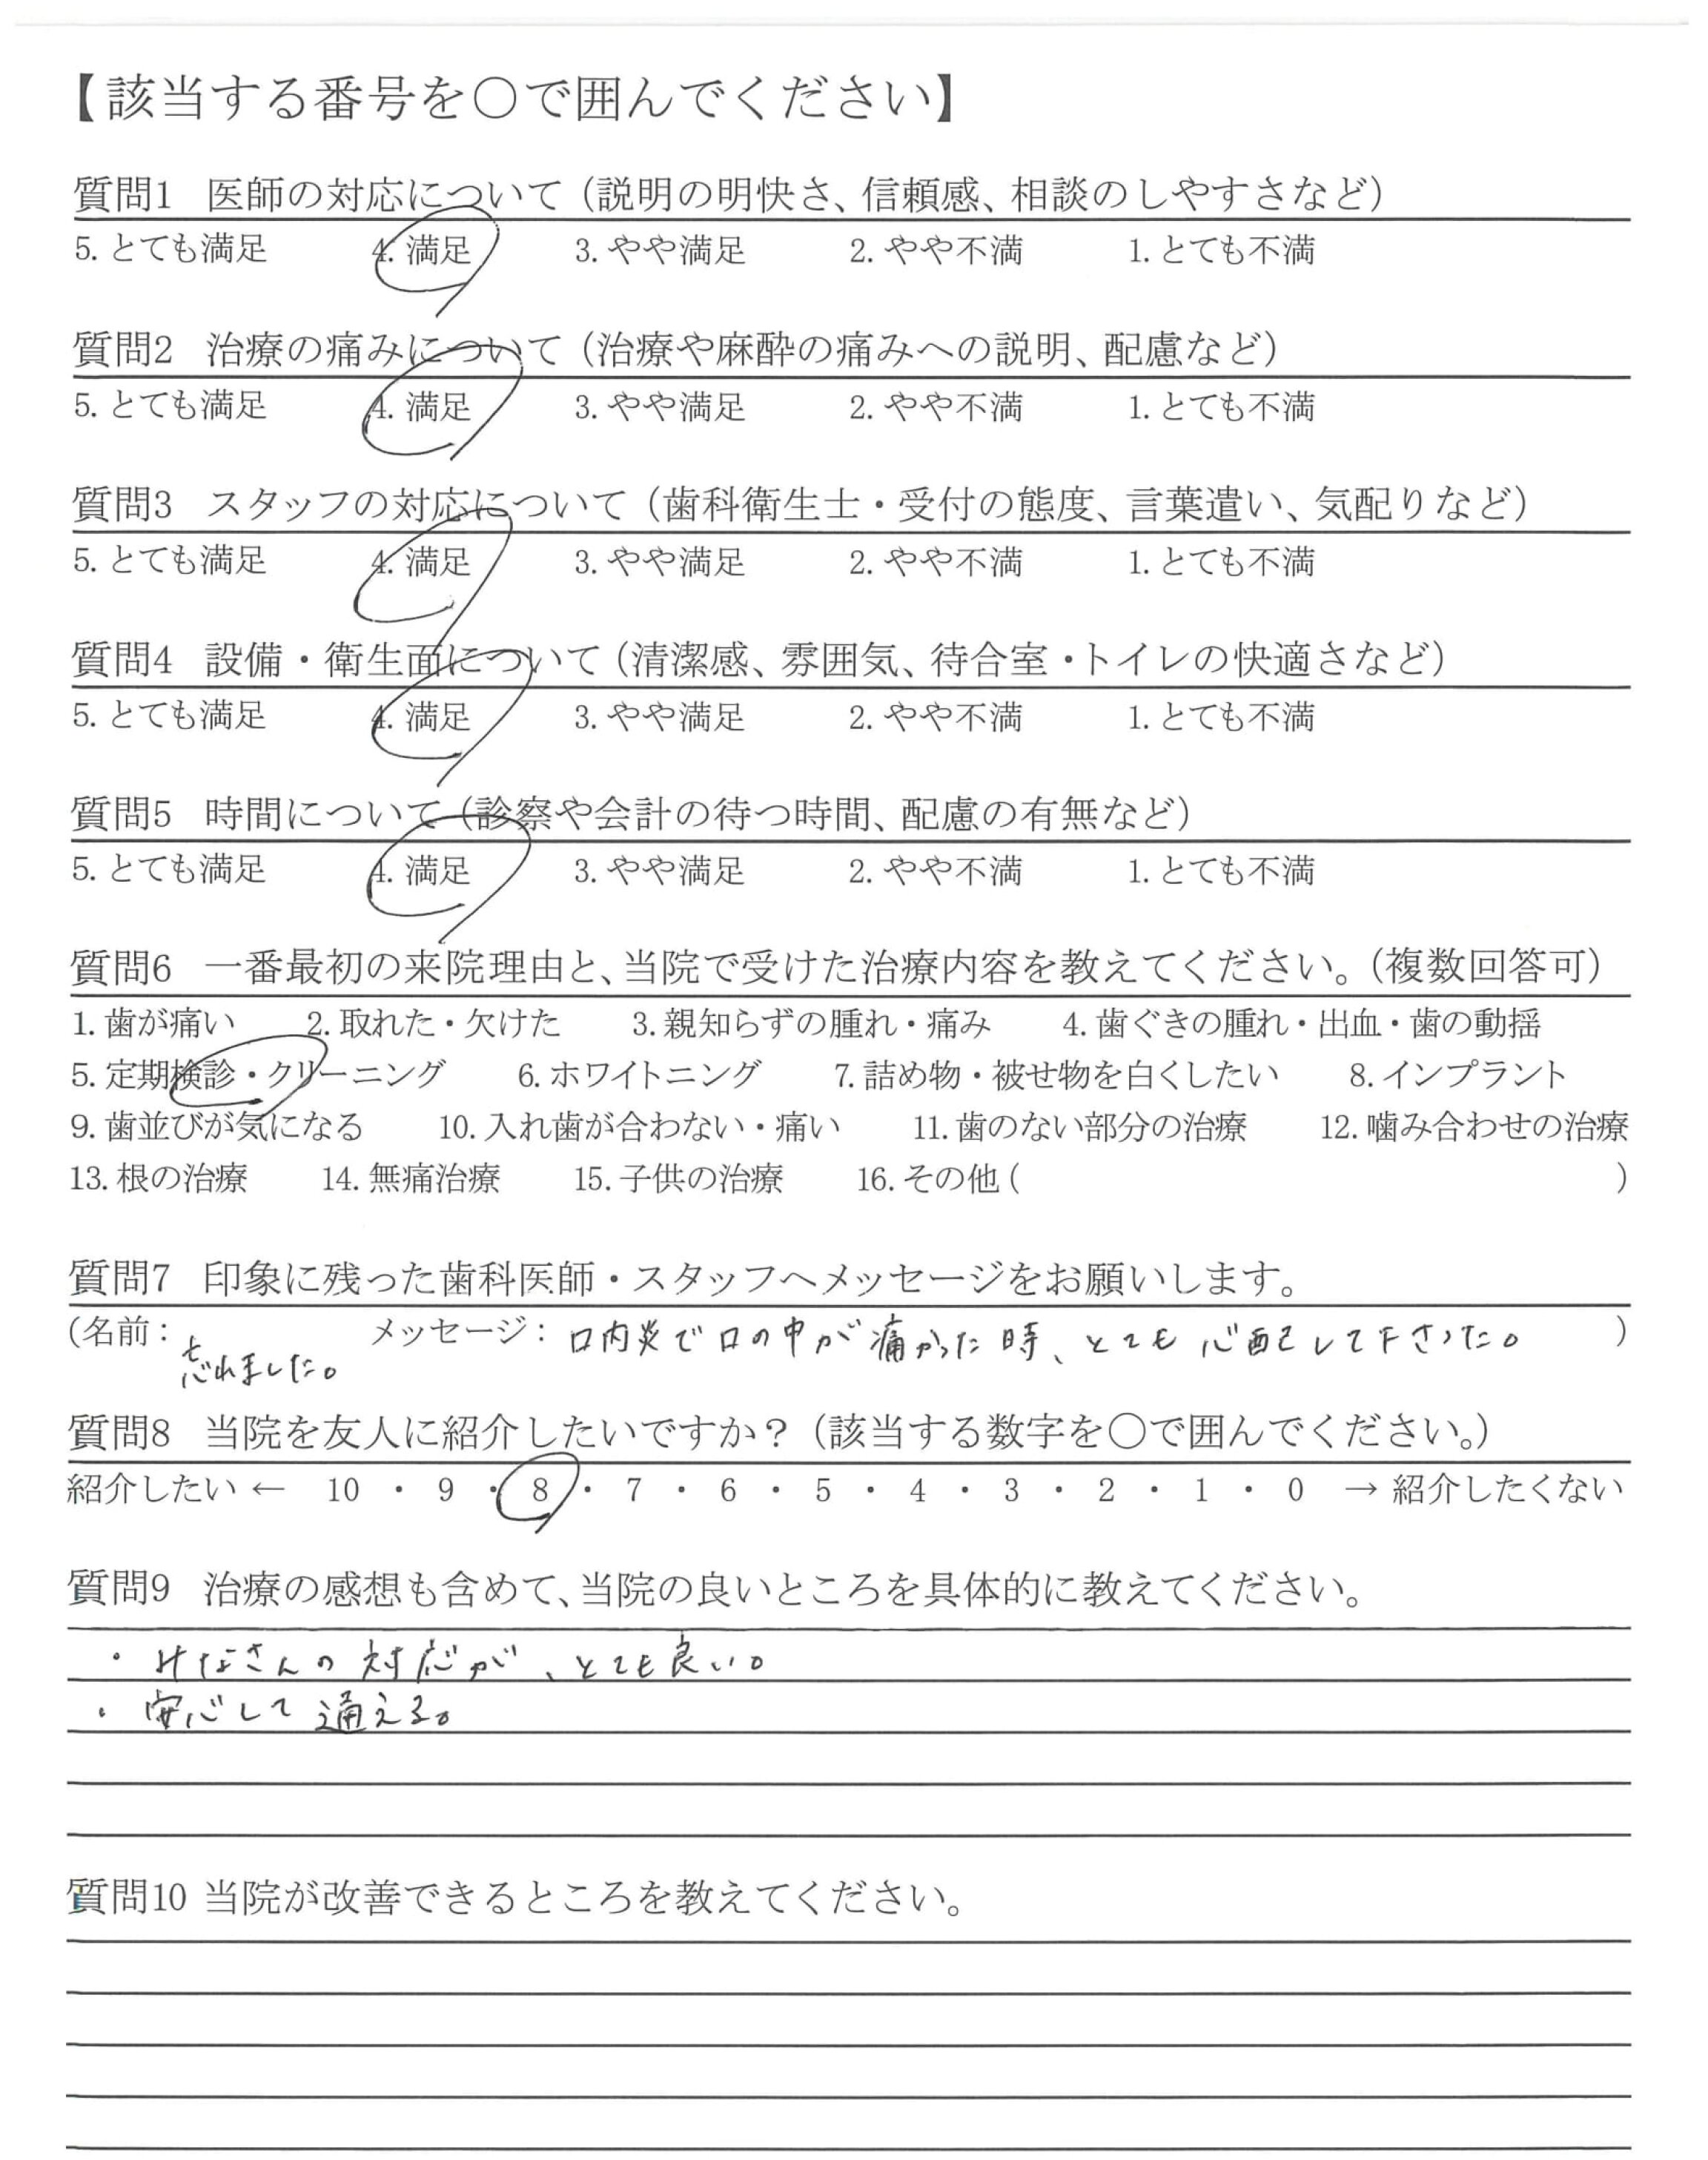 【該当する番号を○で囲んでください】
質問1 医師の対応について（説明の明快さ、信頼感、相談のしやすさなど）
5. とても満足 4. 満足 3. やや満足 2. やや不満 1. とても不満
質問2 治療の痛みについて（治療や麻酔の痛みへの説明、配慮など）
5. とても満足 4. 満足 3. やや満足 2. やや不満 1. とても不満
質問3 スタッフの対応について（歯科衛生士・受付の態度、言葉遣い、気配りなど）
5. とても満足 4. 満足 3. やや満足 2. やや不満 1. とても不満
質問4 設備・衛生面について（清潔感、雰囲気、待合室・トイレの快適さなど）
5. とても満足 4. 満足 3. やや満足 2. やや不満 1. とても不満
質問5 時間について（診察や会計の待つ時間、配慮の有無など）
5. とても満足 4. 満足 3. やや満足 2. やや不満 1. とても不満
質問6 一番最初の来院理由と、当院で受けた治療内容を教えてください。（複数回答可）
1. 歯が痛い 2. 取れた・欠けた 3. 親知らずの腫れ・痛み 4. 歯ぐきの腫れ・出血・歯の動揺
5. 定期検診・クリーニング 6. ホワイトニング 7. 詰め物・被せ物を白くしたい 8. インプラント
9. 歯並びが気になる 10. 入れ歯が合わない・痛い 11. 歯のない部分の治療 12. 噛み合わせの治療
13. 根の治療 14. 無痛治療 15. 子供の治療 16. その他（ ）
質問7 印象に残った歯科医師・スタッフへメッセージをお願いします。
（名前： メッセージ：口内炎で口の中が痛かった時、とても心配して下さった。 ）
忘れました。
質問8 当院を友人に紹介したいですか？（該当する数字を○で囲んでください。）
紹介したい ← 10 ・ 9 ・ 8 ・ 7 ・ 6 ・ 5 ・ 4 ・ 3 ・ 2 ・ 1 ・ 0 → 紹介したくない
質問9 治療の感想も含めて、当院の良いところを具体的に教えてください。
・みなさんの対応が、とても良い。
・安心して通える。
質問10 当院が改善できるところを教えてください。